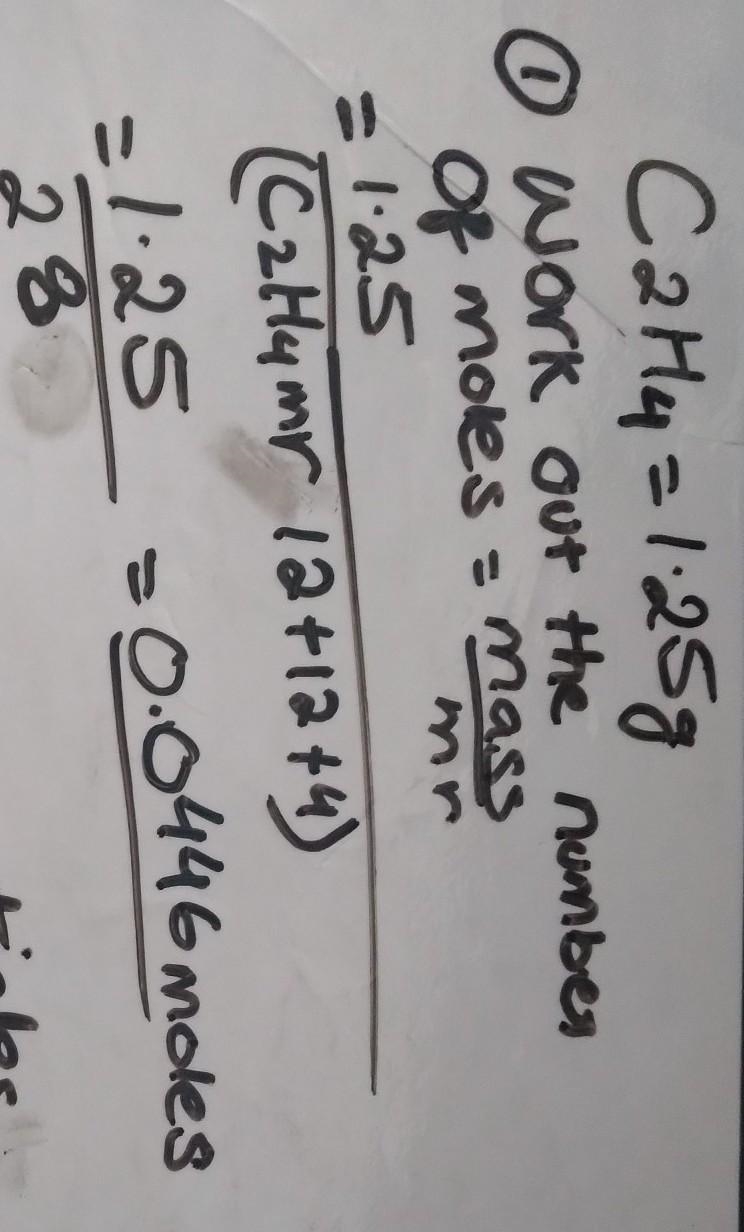 C2H4 = 1.25g
① Work out the number
of moles = mass
mr
= 1.25
(C2H4 mr 12+12+4)
= 1.25 = 0.0446 moles
28